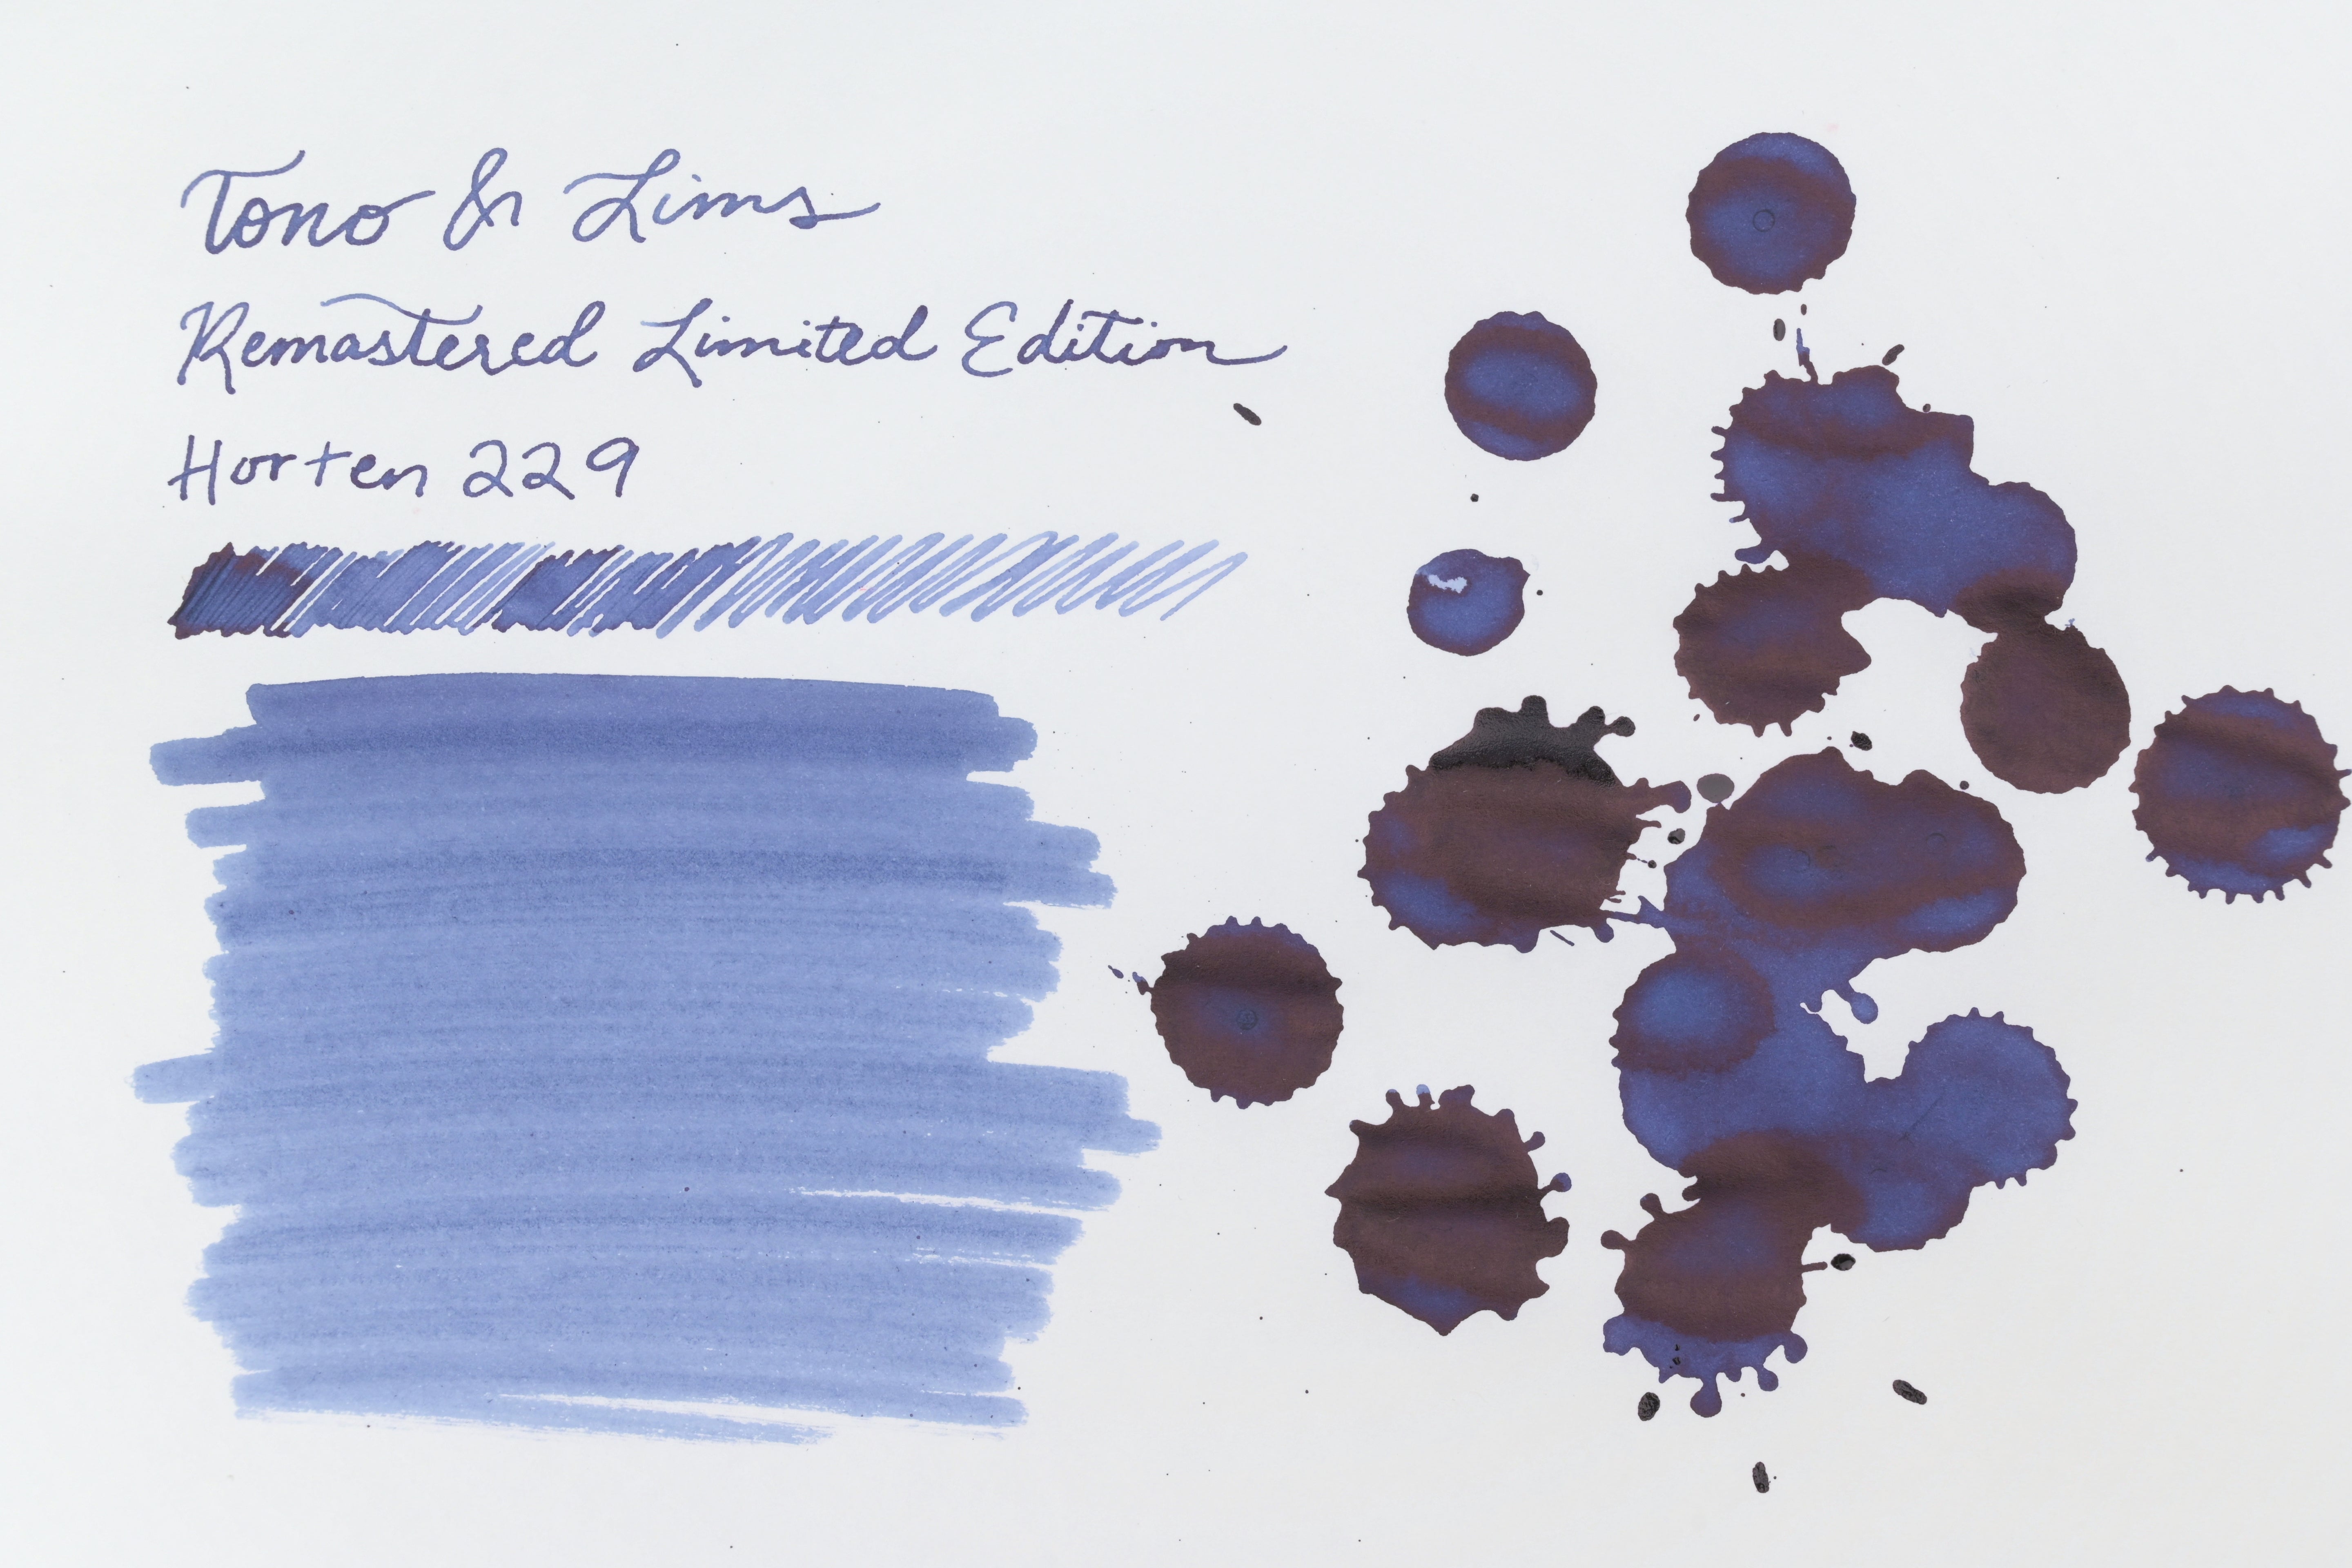 Tono & Lims
Remastered Limited Edition
Horten 229